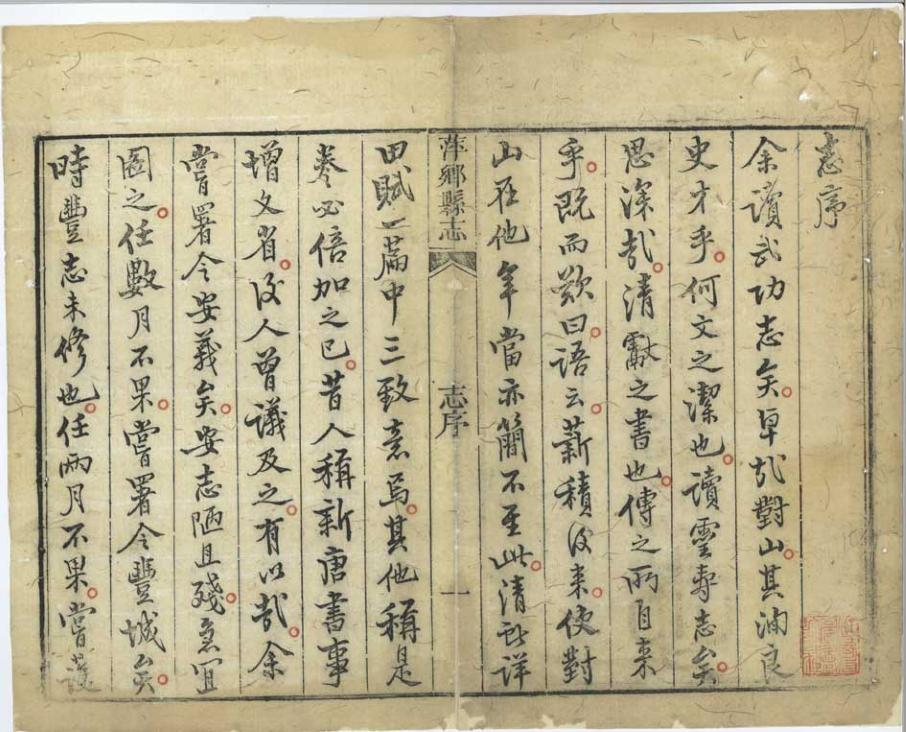 志序
余讀武功志矣卓哉對山其涵良
史才乎何文之潔也讀靈壽志矣
思深哉清獻之書也傳之所自來
乎既而歎曰語云薪積後來使對
山在他年當亦簡不至此清獻詳
萍鄉縣志
志序
一
田賦一篇中三致意焉其他稱是
卷必倍加之已昔人稱新唐書事
增文省後人曾議及之有以哉余
嘗署令安義矣安志陋且殘急宜
圖之任數月不果嘗署令豐城矣
時豐志未修也任兩月不果嘗護